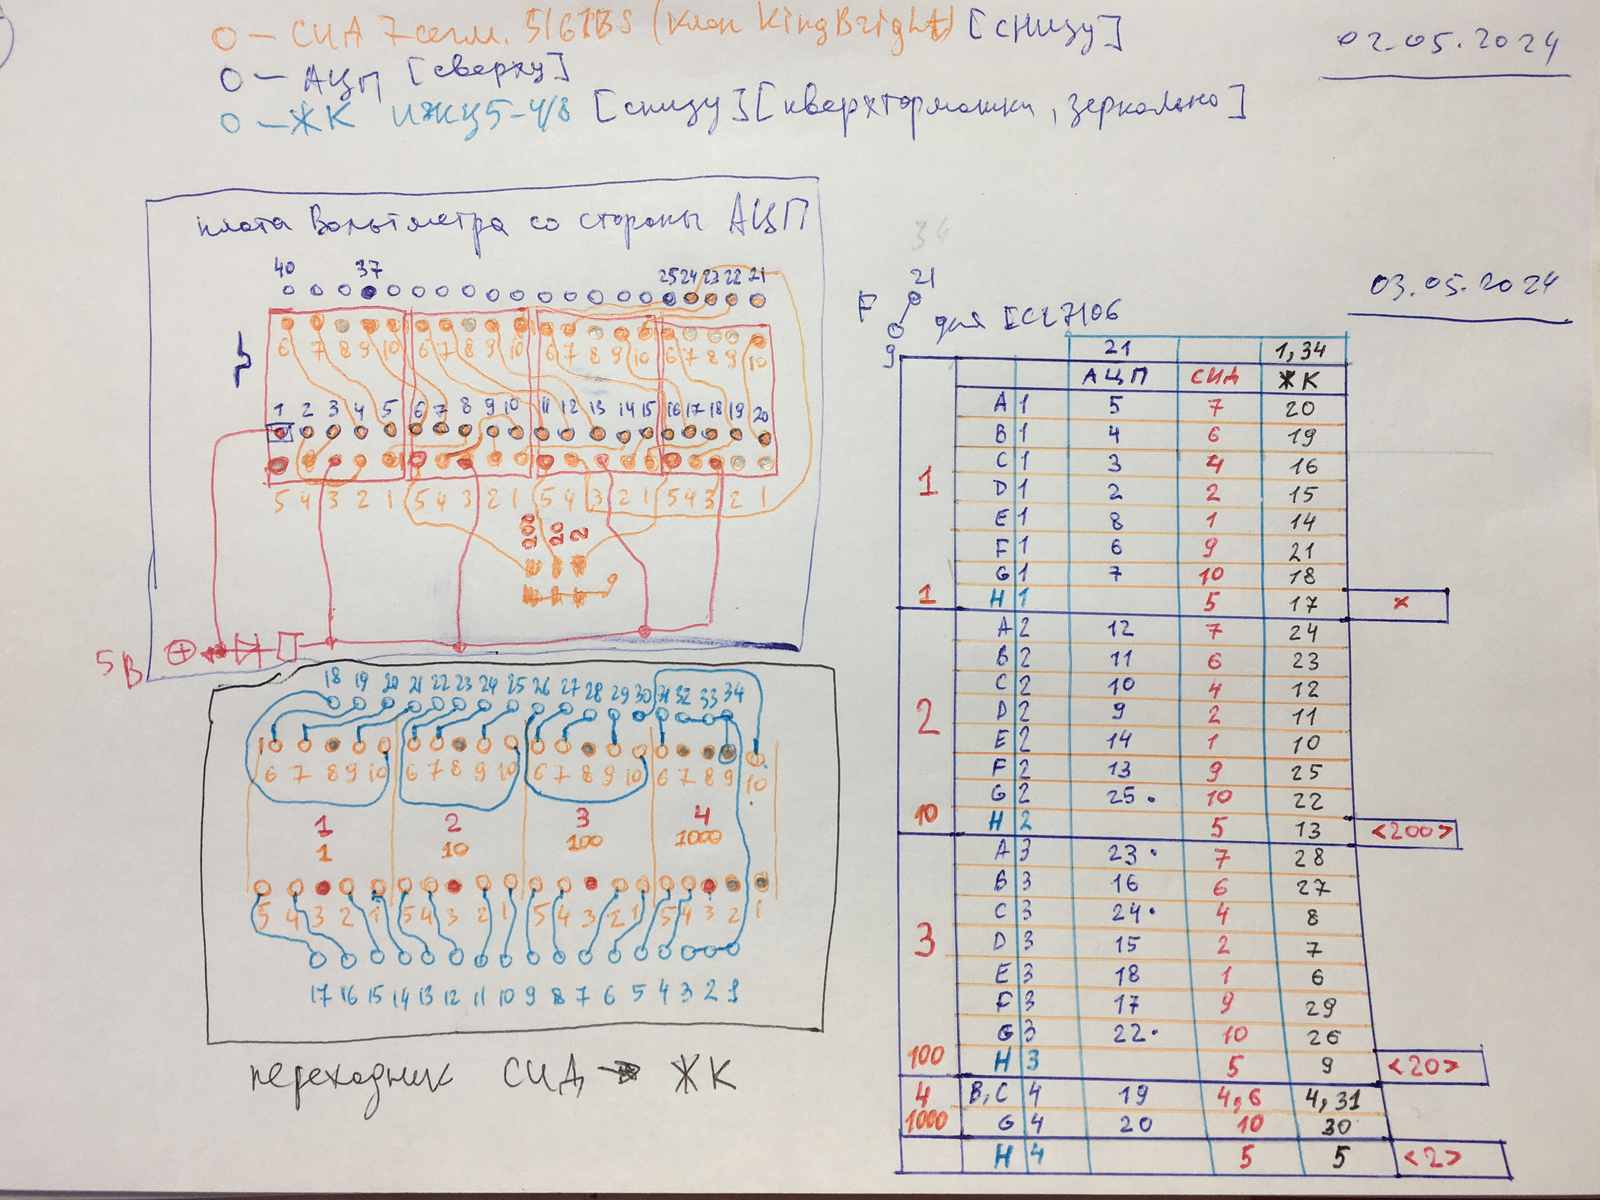 О – СИД 7 сегм. 5161BS (клон KingBright) [снизу]
О – АЦП [сверху]
О – ЖК ИЖЦ5-4/8 [снизу] [кверхтормашки, зеркально]
02.05.2024
плата Вольтметра со стороны АЦП
40 37 25 24 23 22 21
6 7 8 9 10 6 7 8 9 10 6 7 8 9 10 6 7 8 9 10
1 2 3 4 5 6 7 8 9 10 11 12 13 14 15 16 17 18 19 20
5 4 3 2 1 5 4 3 2 1 5 4 3 2 1 5 4 3 2 1
200 20 2
5В
18 19 20 21 22 23 24 25 26 27 28 29 30 31 32 33 34
6 7 8 9 10 6 7 8 9 10 6 7 8 9 10 6 7 8 9 10
1 2 3 4
1 10 100 1000
5 4 3 2 1 5 4 3 2 1 5 4 3 2 1 5 4 3 2 1
17 16 15 14 13 12 11 10 9 8 7 6 5 4 3 2 1
переходник СИД → ЖК
34
03.05.2024
21
F для ICL7106
9
21 1,34
АЦП СИД ЖК
A 1 5 7 20
B 1 4 6 19
C 1 3 4 16
1
D 1 2 2 15
E 1 8 1 14
F 1 6 9 21
G 1 7 10 18
1 H 1 5 17 x
A 2 12 7 24
B 2 11 6 23
C 2 10 4 12
2
D 2 9 2 11
E 2 14 1 10
F 2 13 9 25
G 2 25. 10 22
10 H 2 5 13 <200>
A 3 23. 7 28
B 3 16 6 27
C 3 24. 4 8
3
D 3 15 2 7
E 3 18 1 6
F 3 17 9 29
G 3 22. 10 26
100 H 3 5 9 <20>
4 B,C 4 19 4,6 4,31
1000 G 4 20 10 30
H 4 5 5 <2>